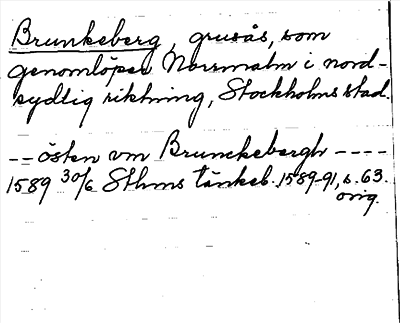 Brunkeberg, grusås, som
genomlöper Norrmalm i nord-
sydlig riktning, Stockholms stad.
-- östen vm Brunckebergh ----
1589 30/6 Sthms tänkeb. 1589-91, s. 63.
orig.